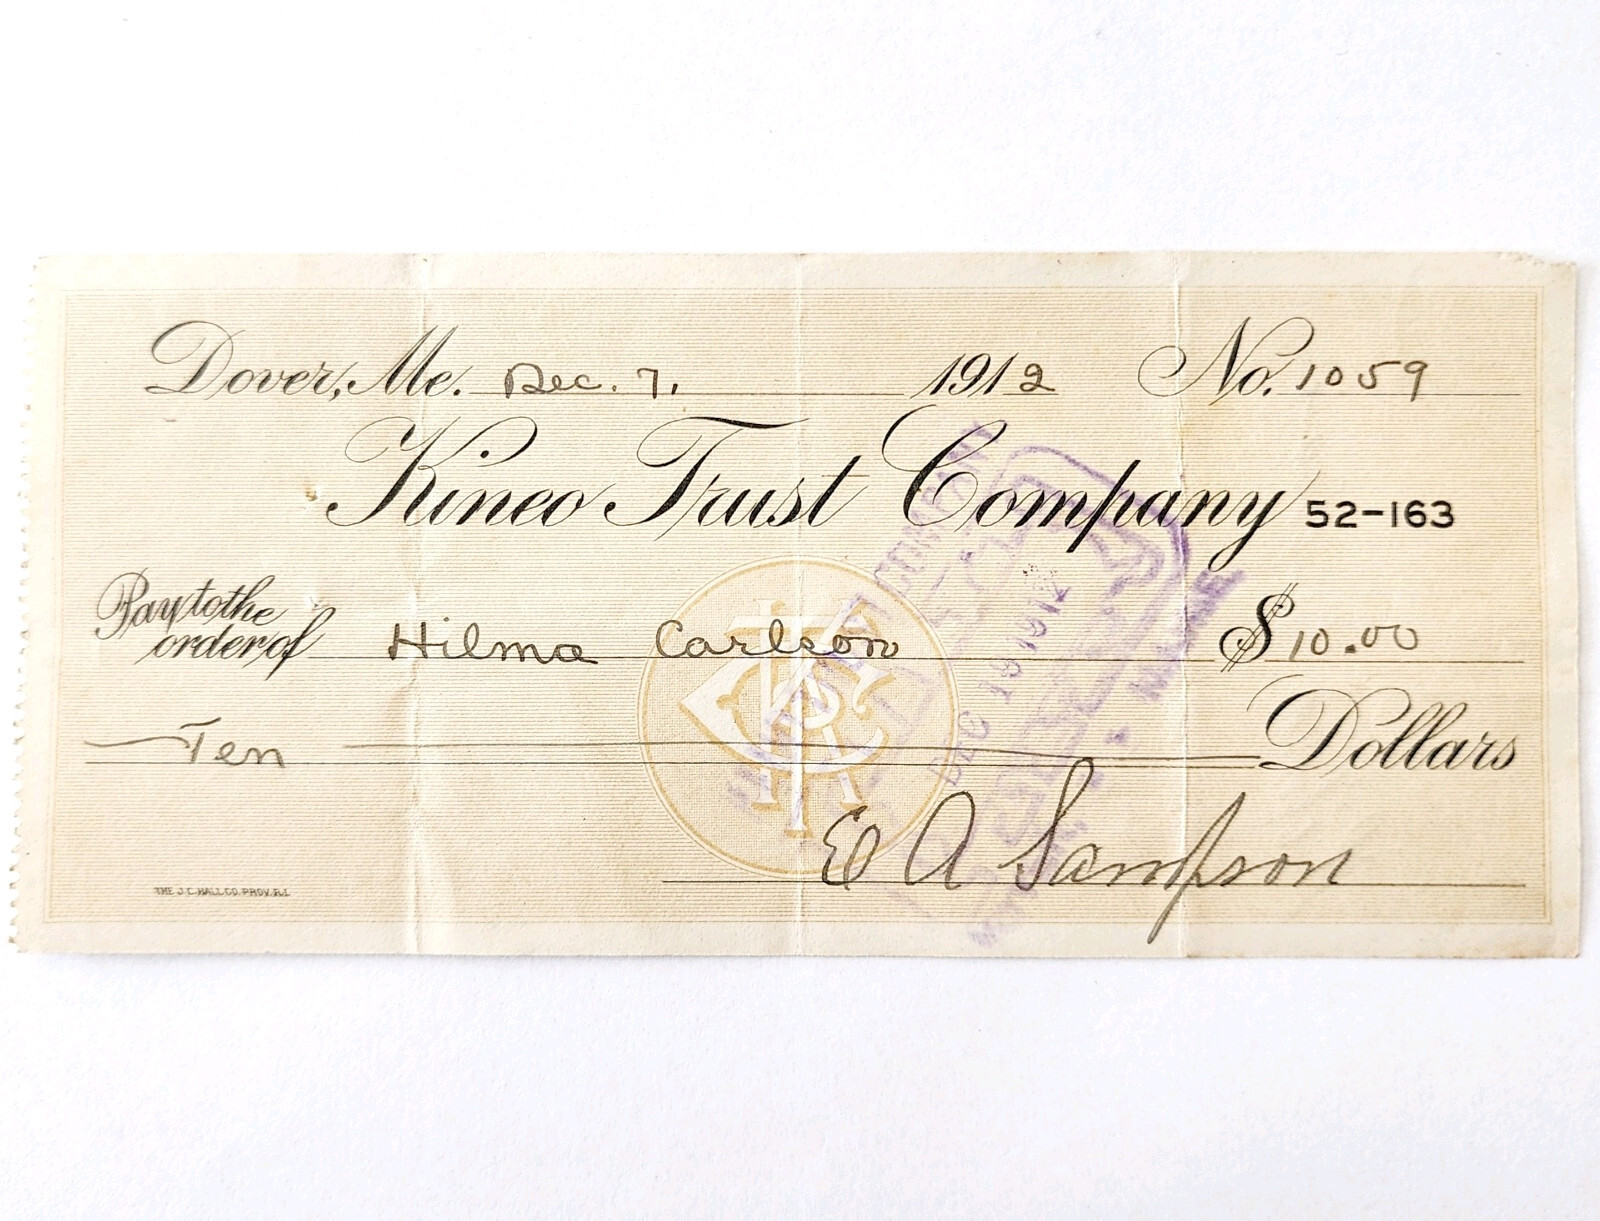 Dover, Me. Dec. 7. 1912 No. 1059
Kineo Trust Company 52-163
Pay to the
order of Hilma Carlson $10.00
Ten Dollars
E A Sampson
THE J.C. HALL CO. PROV. R.I.
COMPANY
DEC 19 1912
MAINE